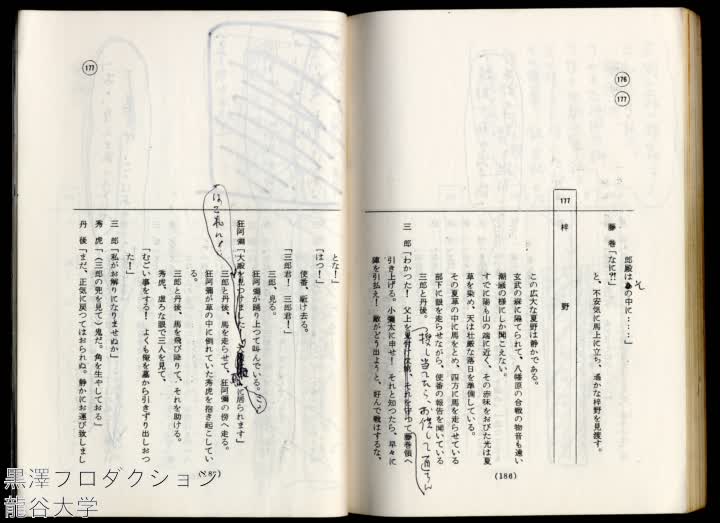 176
177
郎殿はその中に……」
藤巻「なに?!」
と、不安気に馬上に立ち、遥かな梓野を見渡す。
177
梓野
この広大な夏野は静かである。
玄武の森に隔てられて、八幡原の合戦の物音も遠い
潮騒の様にしか聞こえない。
すでに陽も山の端に近く、その赤味をおびた光は夏
草を染め、天は壮厳な落日を準備している。
その夏草の中に馬をとめ、四方に馬を走らせている
部下に眼を走らせながら、使番の報告を聞いている
三郎と丹後。
三郎「わかった! 父上を見付け次第、それを守って藤巻領へ
引き上げる。小彌太に申せ! それと知ったら、早々に
陣を引払え! 敵がどう出ようと、好んで戦はするな、
(186)
177
とな!」
「はっ!」
使番、駆け去る。
「三郎君! 三郎君!」
三郎、見る。
狂阿彌が踊り上って叫んでいる。
狂阿彌「大殿を見つけました!に居られます」
はこれに!
三郎と丹後、馬を走らせて、狂阿彌の傍へ走る。
狂阿彌が草の中に倒れていた秀虎を抱き起こしてい
る。
三郎と丹後、馬を飛び降りて、それを助ける。
秀虎、虚ろな眼で三人を見て、
「むごい事をする! よくも俺を墓から引きずり出しおっ
た!」
三郎「私がお解りになりませぬか」
秀虎「(三郎の兜を見て)鬼だ。角を生やしておる」
丹後「まだ、正気に戻ってはおられぬ。静かにお運び致しまし
黒澤プロダクション
龍谷大学